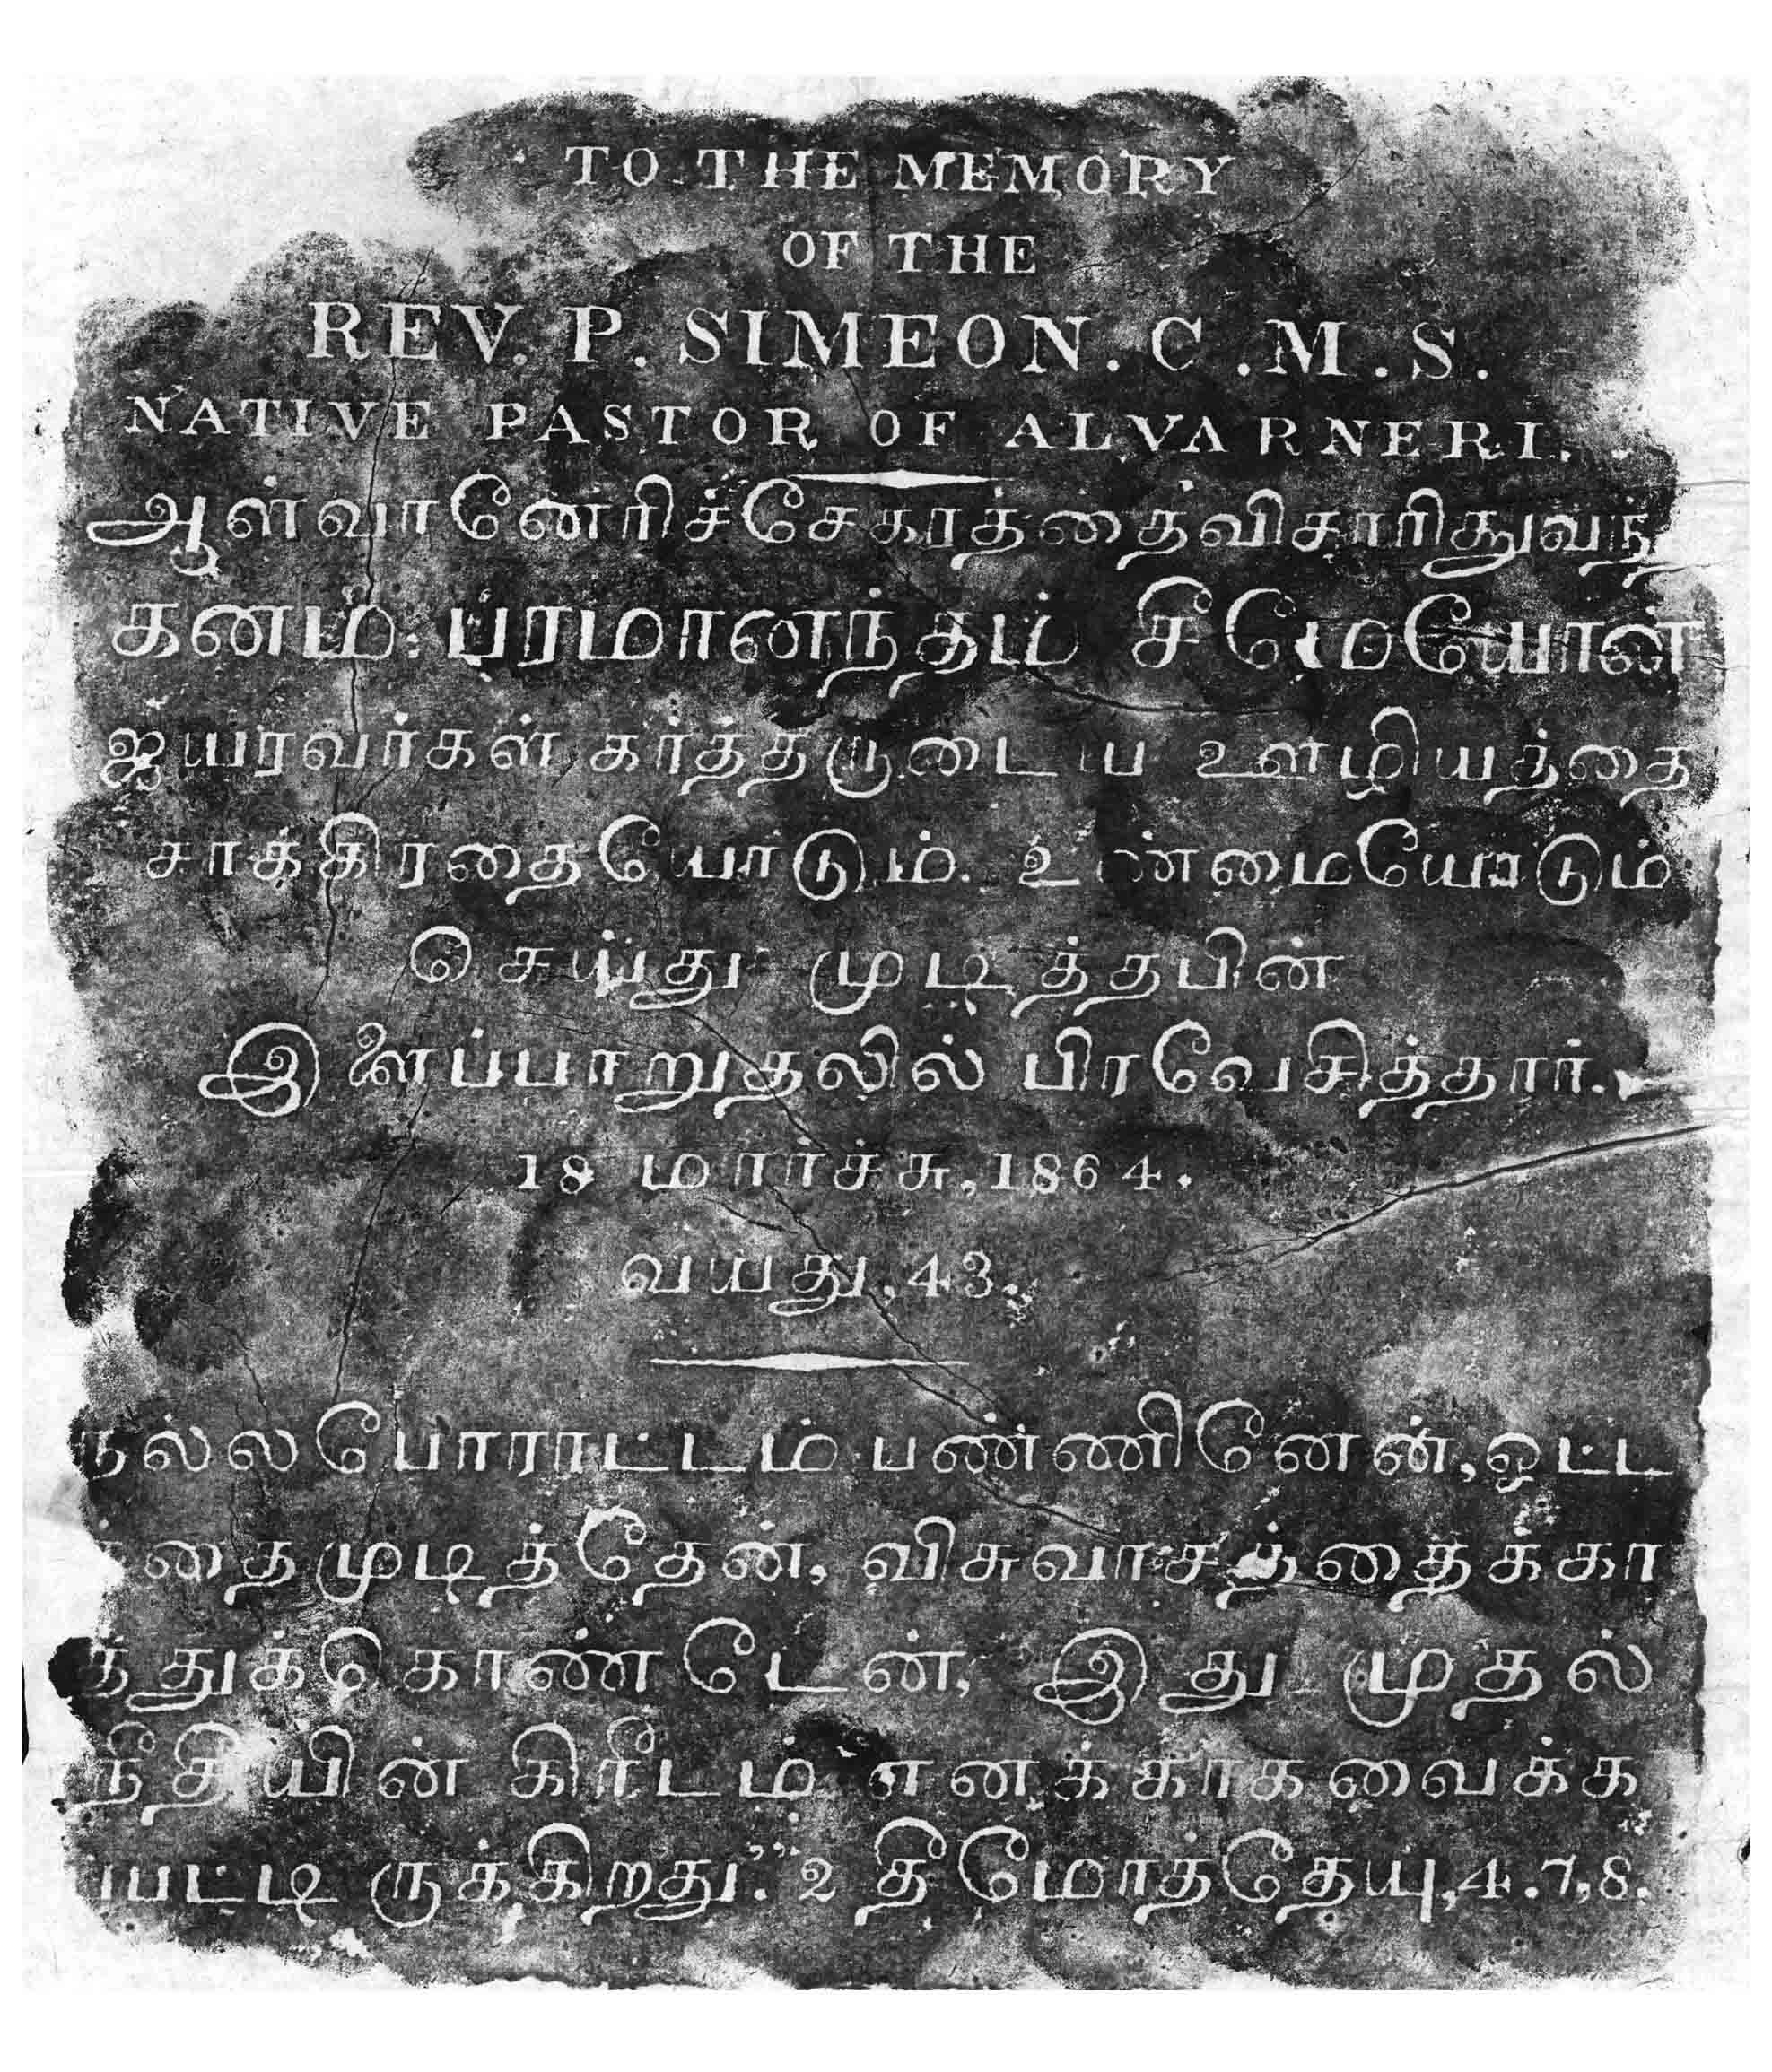 TO THE MEMORY
OF THE
REV. P. SIMEON. C.M.S.
NATIVE PASTOR OF ALVARNERI.
ஆள்வானேரிச்சேகரத்தைவிசாரித்துவந்
கனம். பரமானந்தம் சீமேயோன்
ஐயரவர்கள் கர்த்தருடைய ஊழியத்தை
சாக்கிரதையோடும். உண்மையோடும்
செய்து முடித்தபின்
இளைப்பாறுதலில் பிரவேசித்தார்.
18 மார்ச்சு, 1864.
வயது, 43.
நல்லபோராட்டம் பண்ணினேன், ஓட்ட
தைமுடித்தேன், விசுவாசத்தைக்கா
த்துக்கொண்டேன், இது முதல்
நீதியின் கிரீடம் எனக்காகவைக்க
ப்பட்டிருக்கிறது." 2 தீமோத்தேயு, 4. 7, 8.